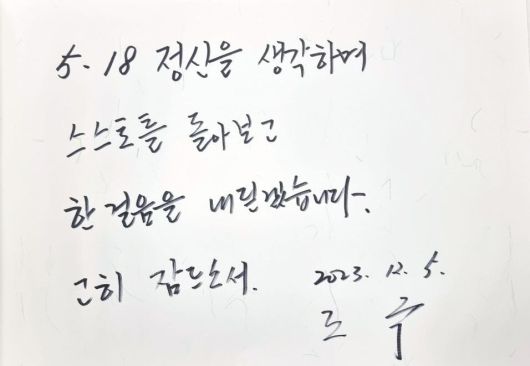 5. 18 정신을 생각하며
스스로를 돌아보고
한 걸음을 내딛겠습니다.
고히 잠드소서.
2023. 12. 5.
조 국